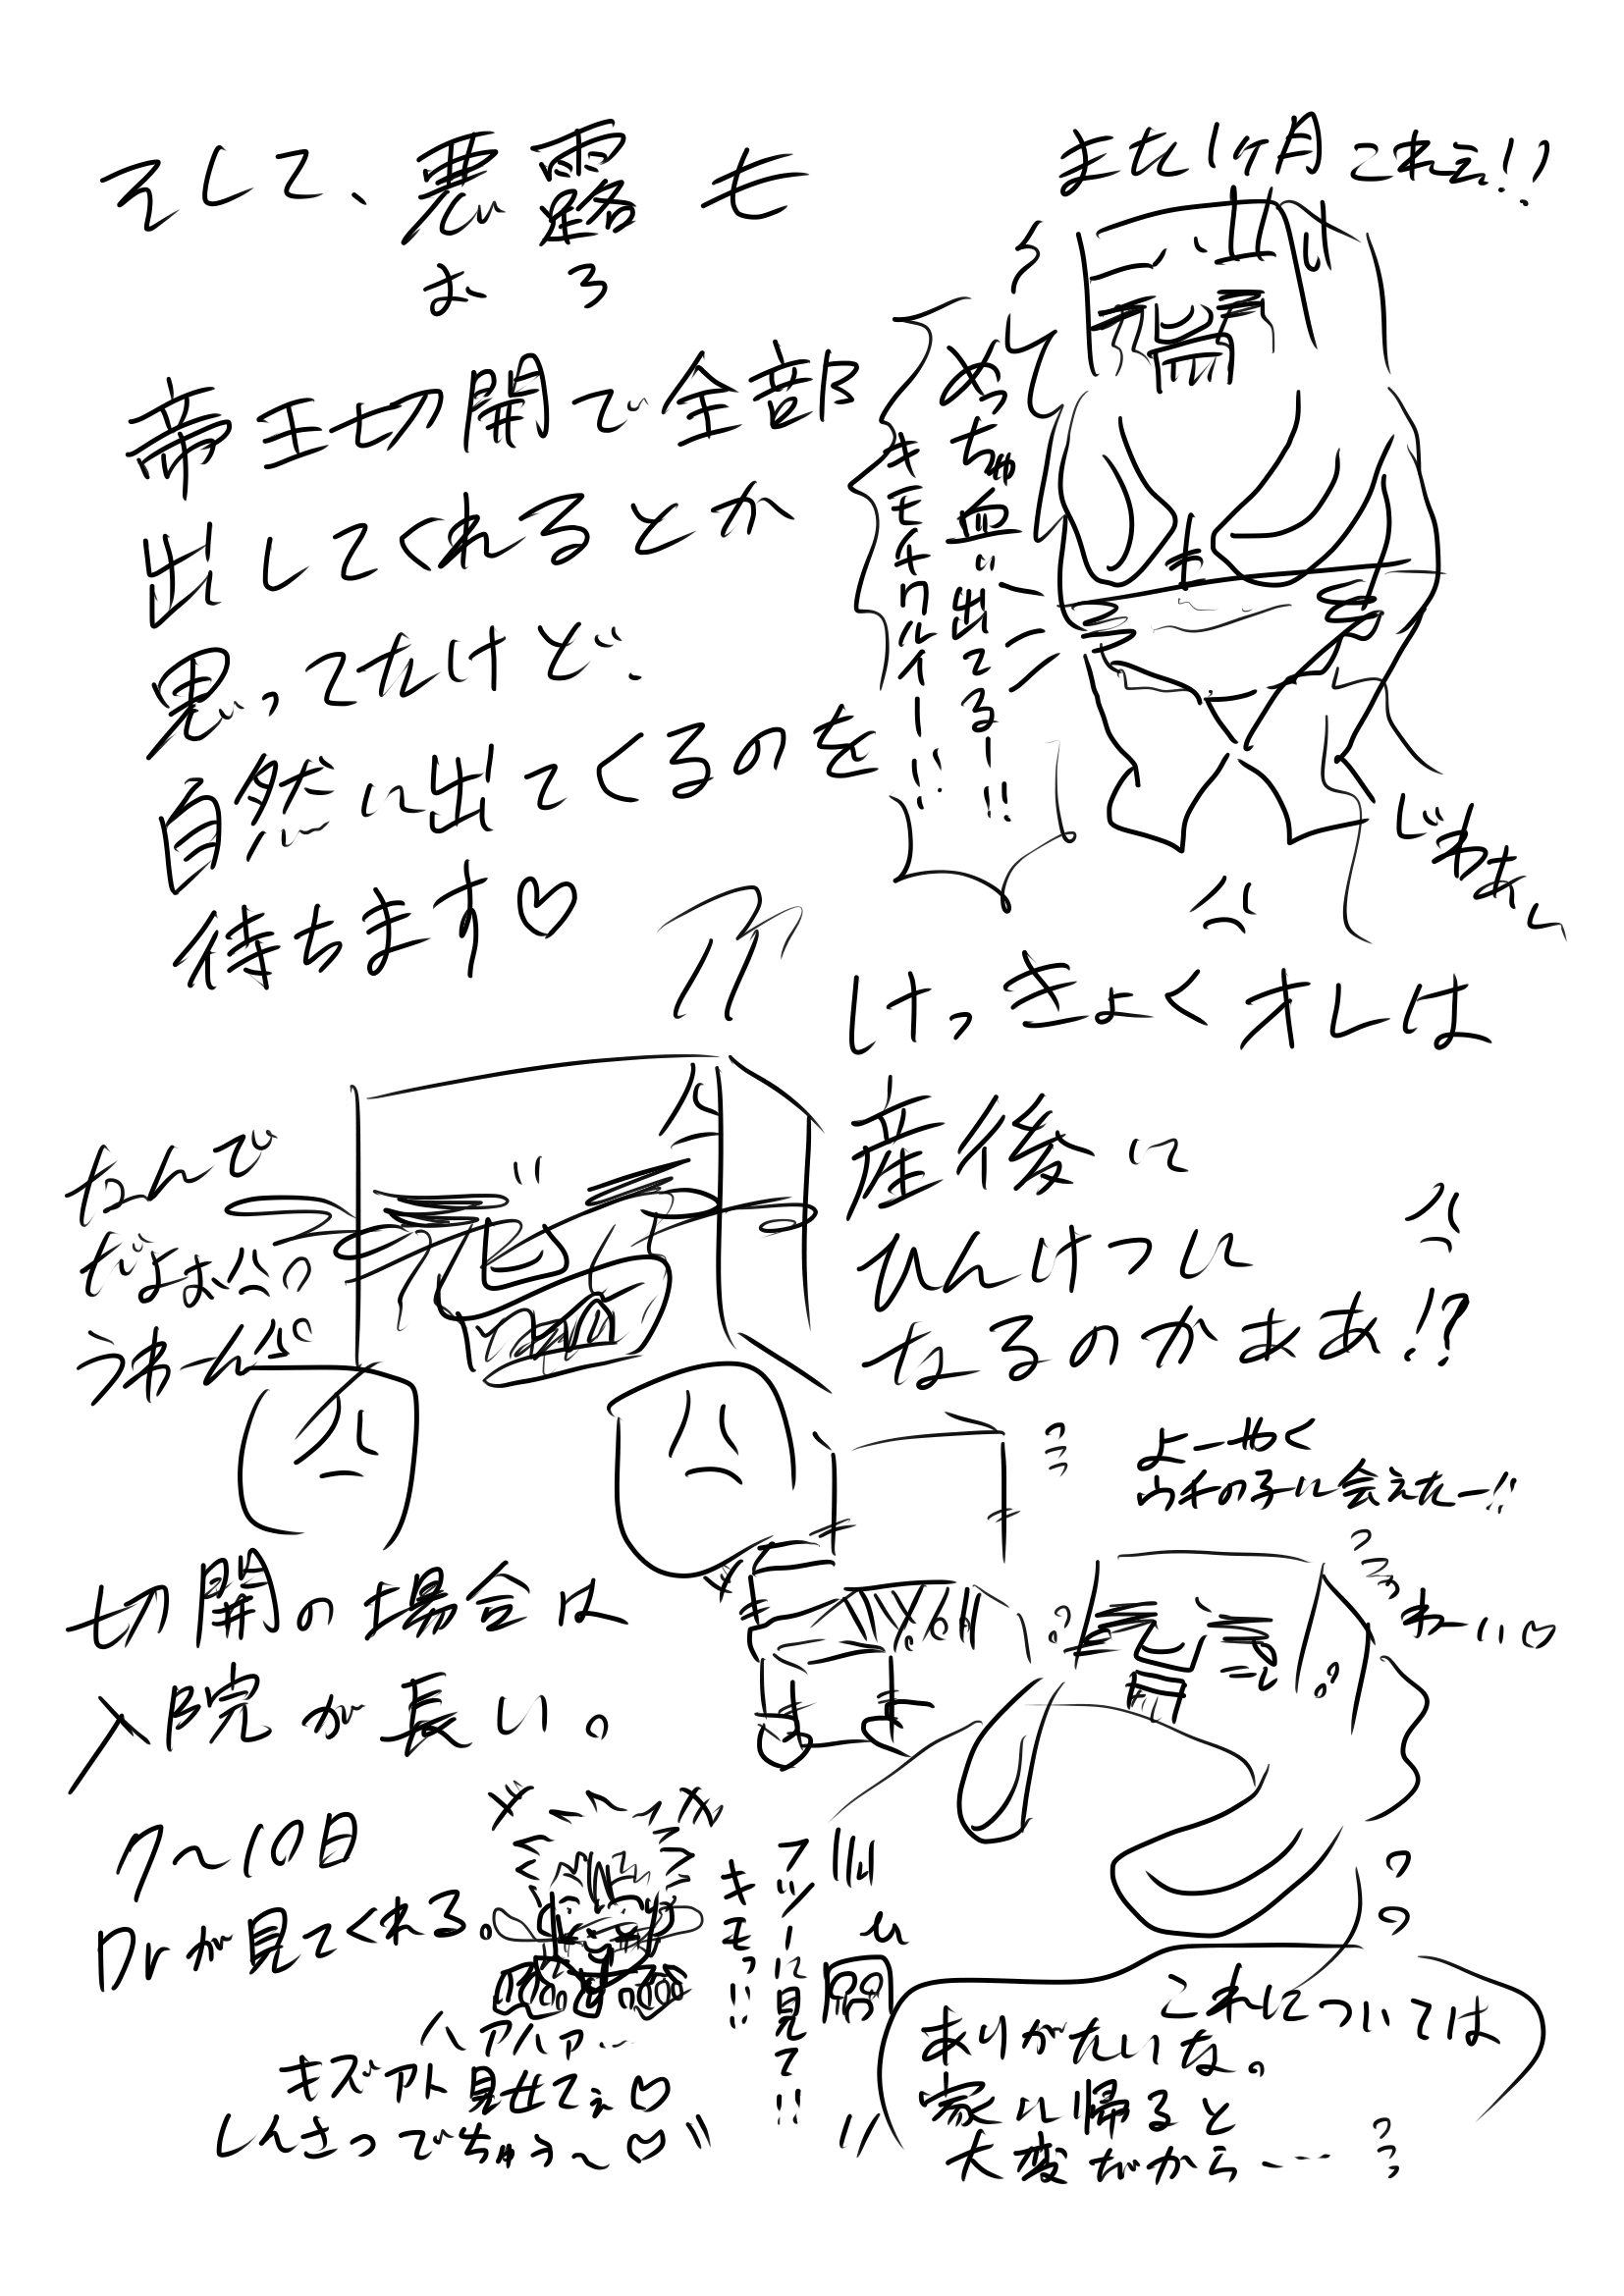 そして、悪露も
おろ
帝王切開で全部
出してくれるとか
思ってたけど、
自然に出てくるのを
待ちます♡
また1ヶ月これぇ!!
めっちゃ血が出てるー!!
キモチワルイー!!
じわぁ〜
けっきょくオレは
産後に
ひんけつに
なるのかぁぁ!?
なんで
だよぉ!!
うわーん!!
よーやく
ウチの子に会えたー!!
わーい♡
切開の場合は
入院が長い。
7〜10日
Drが見てくれる。
ハァハァ…
キズアト見せてぇ♡
しんさつでちゅう〜♡
キモっ!!
フツーに見て!!
これについては
ありがたいな。
家に帰ると
大変だから……